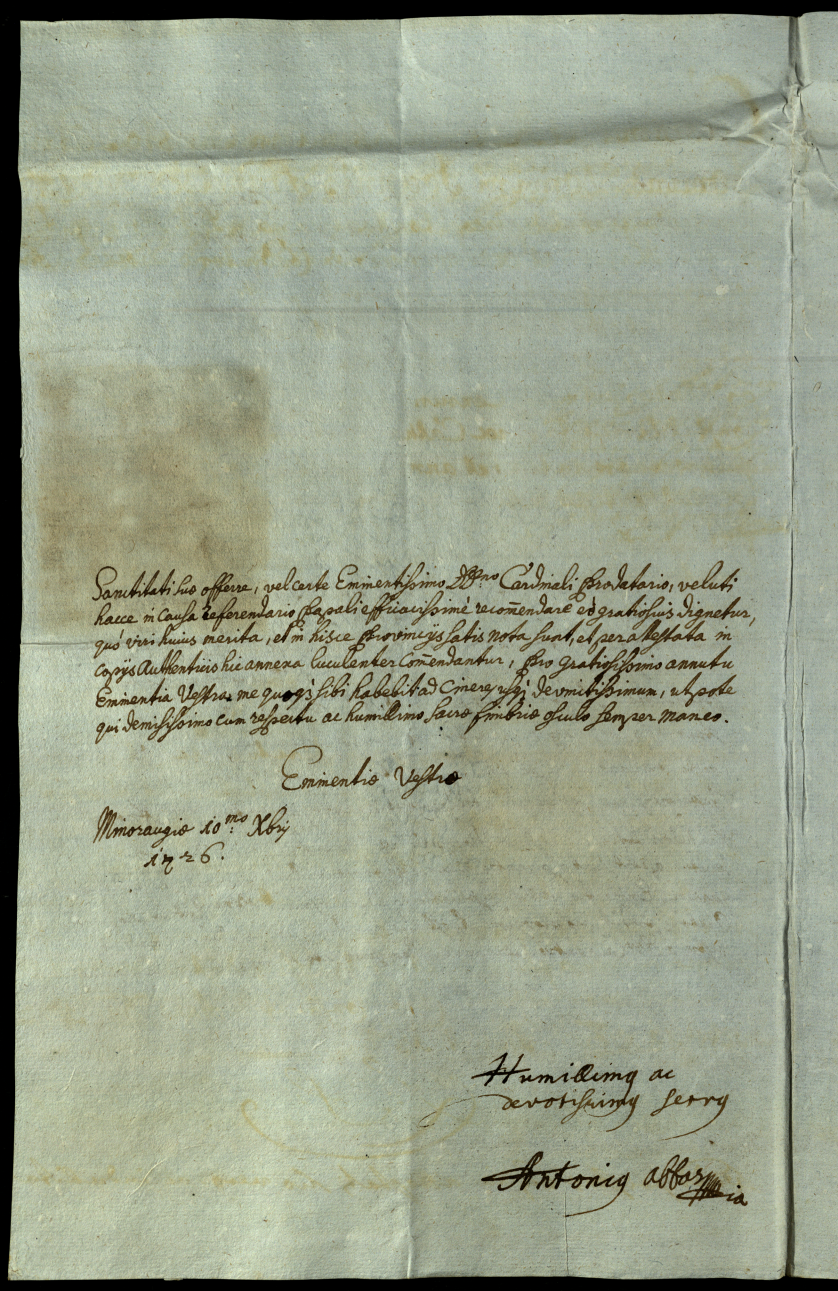 Sanctitati suæ offerre, vel certe Eminentissimo D͞no Cardinali Prodatario, veluti
hacce in causa referendario Papali efficacissimè recom̄endare eo gratiosius dignetur,
quò viri huius merita, et in hisce Provincijs satis nota sunt, et per attestata in
copijs Authenticis hic annexa luculenter com̄endantur, Pro gratiosissimo annutu
Eminentia Vestra me quoq; sibi habebit ad cineres usq; devinctissimum, utpote
qui demississimo cum respectu ac humillimo sacræ fimbriæ osculo semper maneo.
Eminentiæ Vestræ
Minoraugiæ 10mo Xbris
1726.
Humillimus ac
devotissimus servus
Antonius abbas